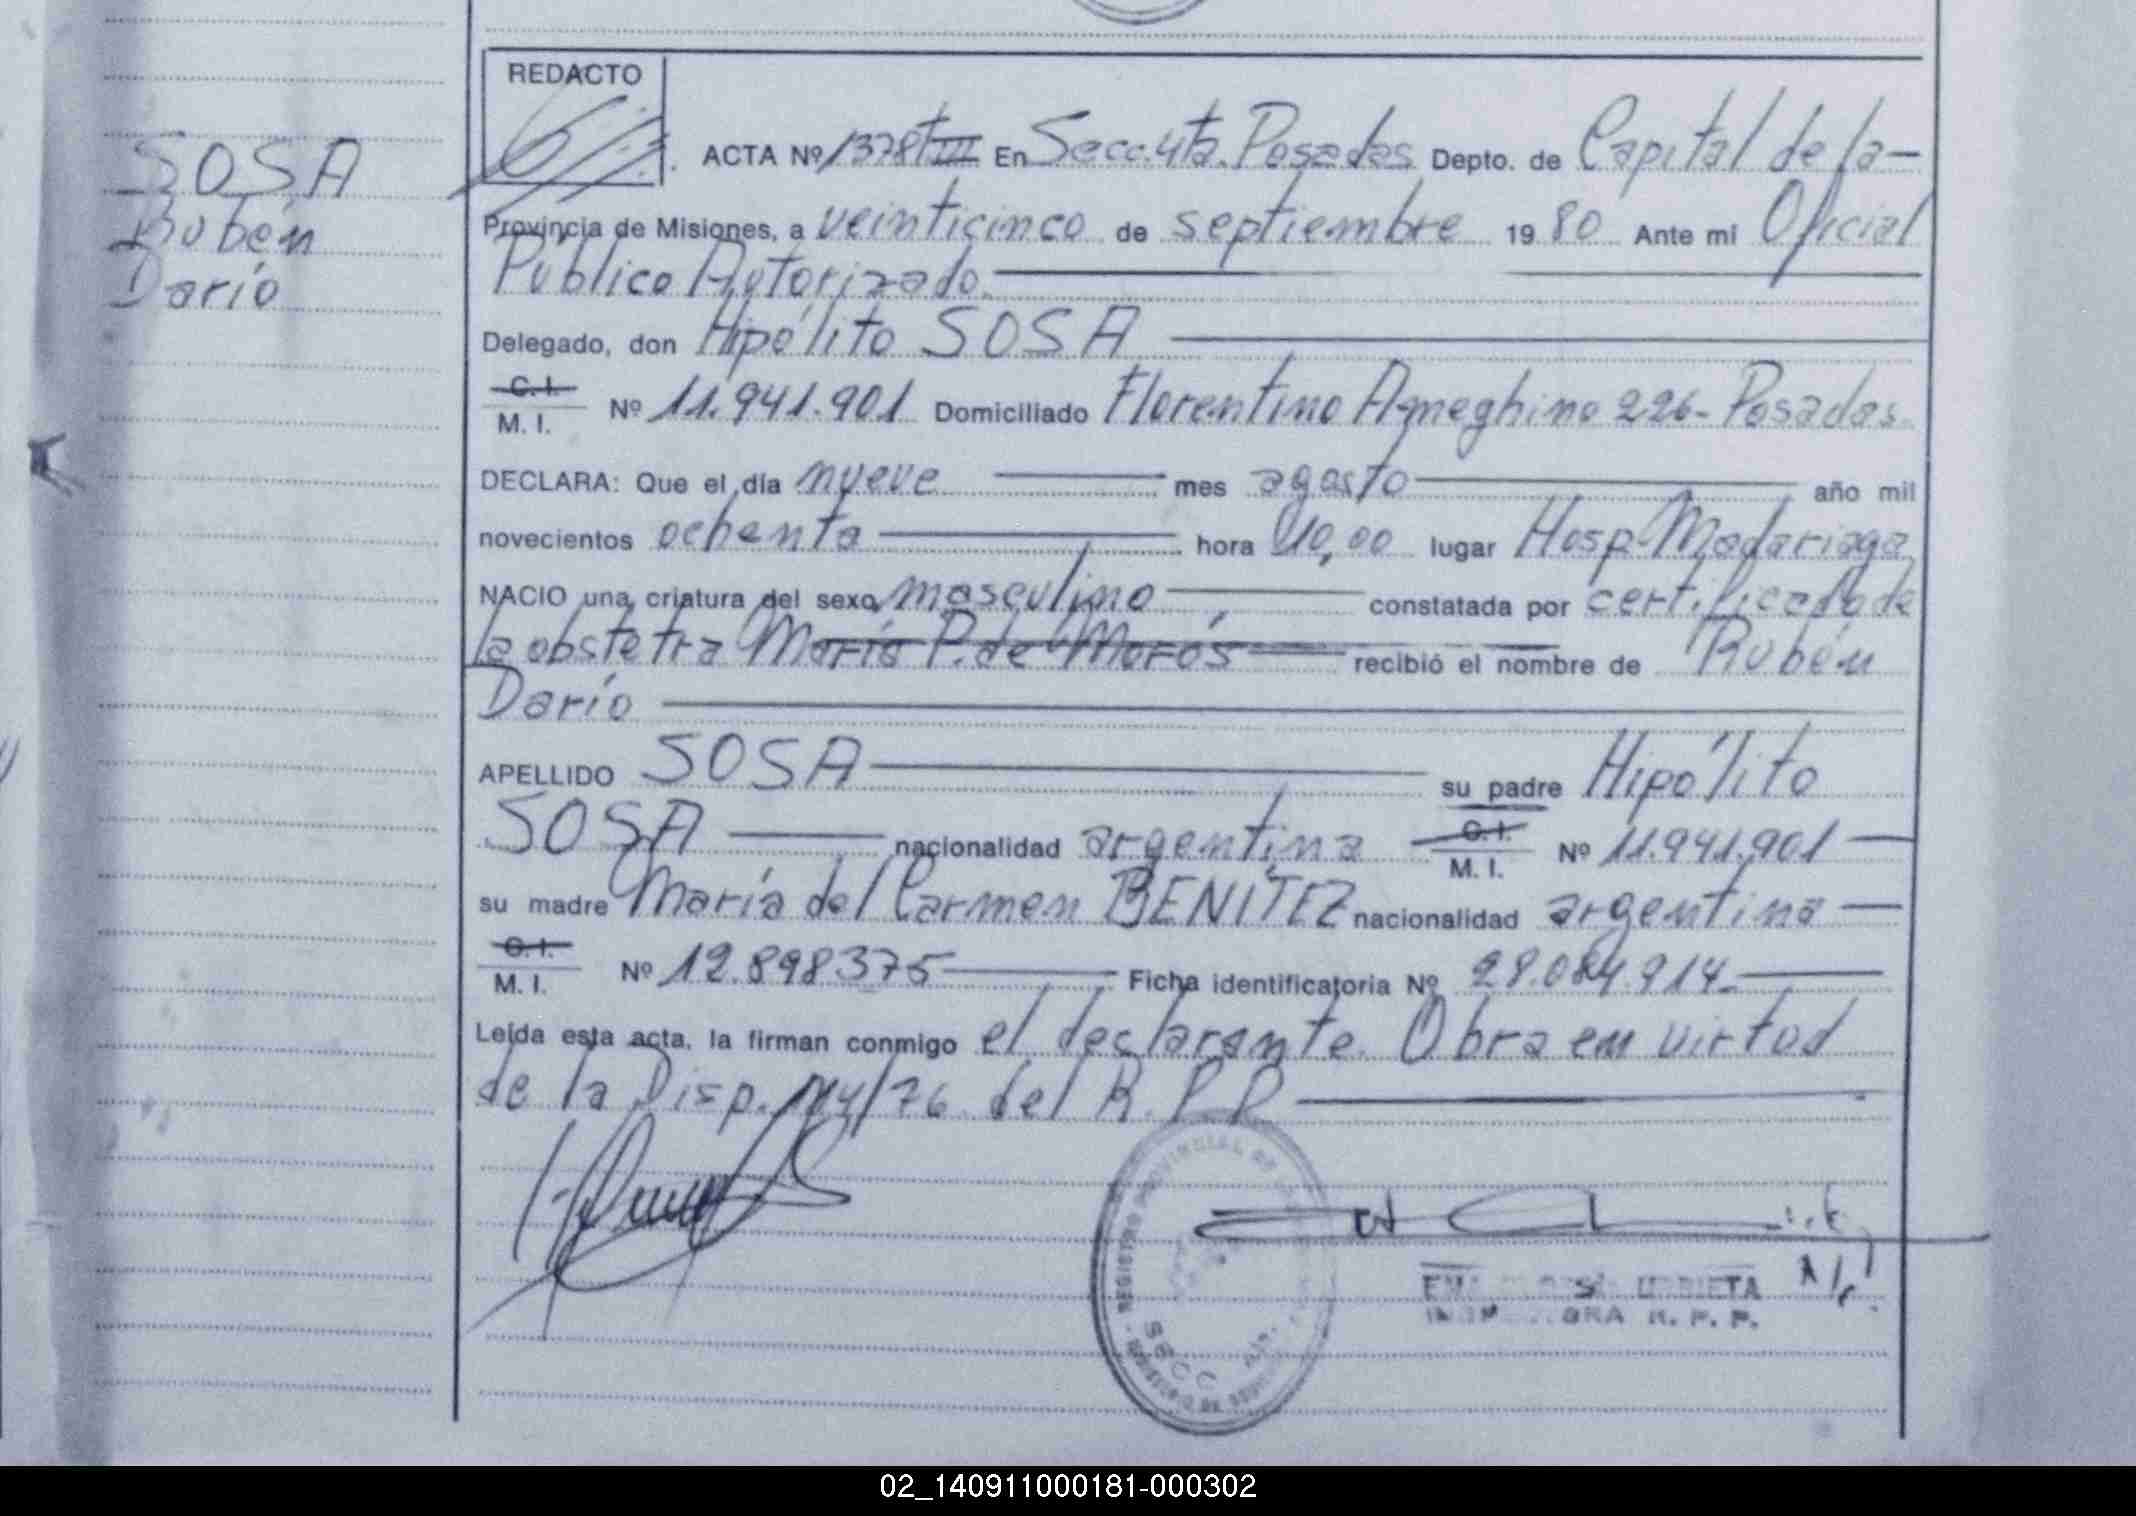 SOSA
Rubén
Darío
REDACTO
ACTA Nº 1378 TIII En Secc. 4ta. Posadas Depto. de Capital de la-
Provincia de Misiones, a veinticinco de septiembre 19 80 Ante mi Oficial
Público Autorizado.
Delegado, don Hipólito SOSA
C. I.
M. I. Nº 11.941.901 Domiciliado Florentino Ameghino 226- Posadas.
DECLARA: Que el día nueve mes agosto año mil
novecientos ochenta hora 10,00 lugar Hosp Madariaga
NACIO una criatura del sexo masculino constatada por certificado de
la obstetra María P. de Morós recibió el nombre de Rubén
Darío
APELLIDO SOSA su padre Hipólito
SOSA nacionalidad argentina C. I. M. I. Nº 11.941.901
su madre María del Carmen BENÍTEZ nacionalidad argentina
C. I.
M. I. Nº 12.898375 Ficha identificatoria Nº 28.084.914.
Leída esta acta, la firman conmigo el declarante. Obra en virtud
de la Disp. /76 del R.P.P
REGISTRO PROVINCIAL DE
SECC
URRIETA
R. P. P.
02_140911000181-000302